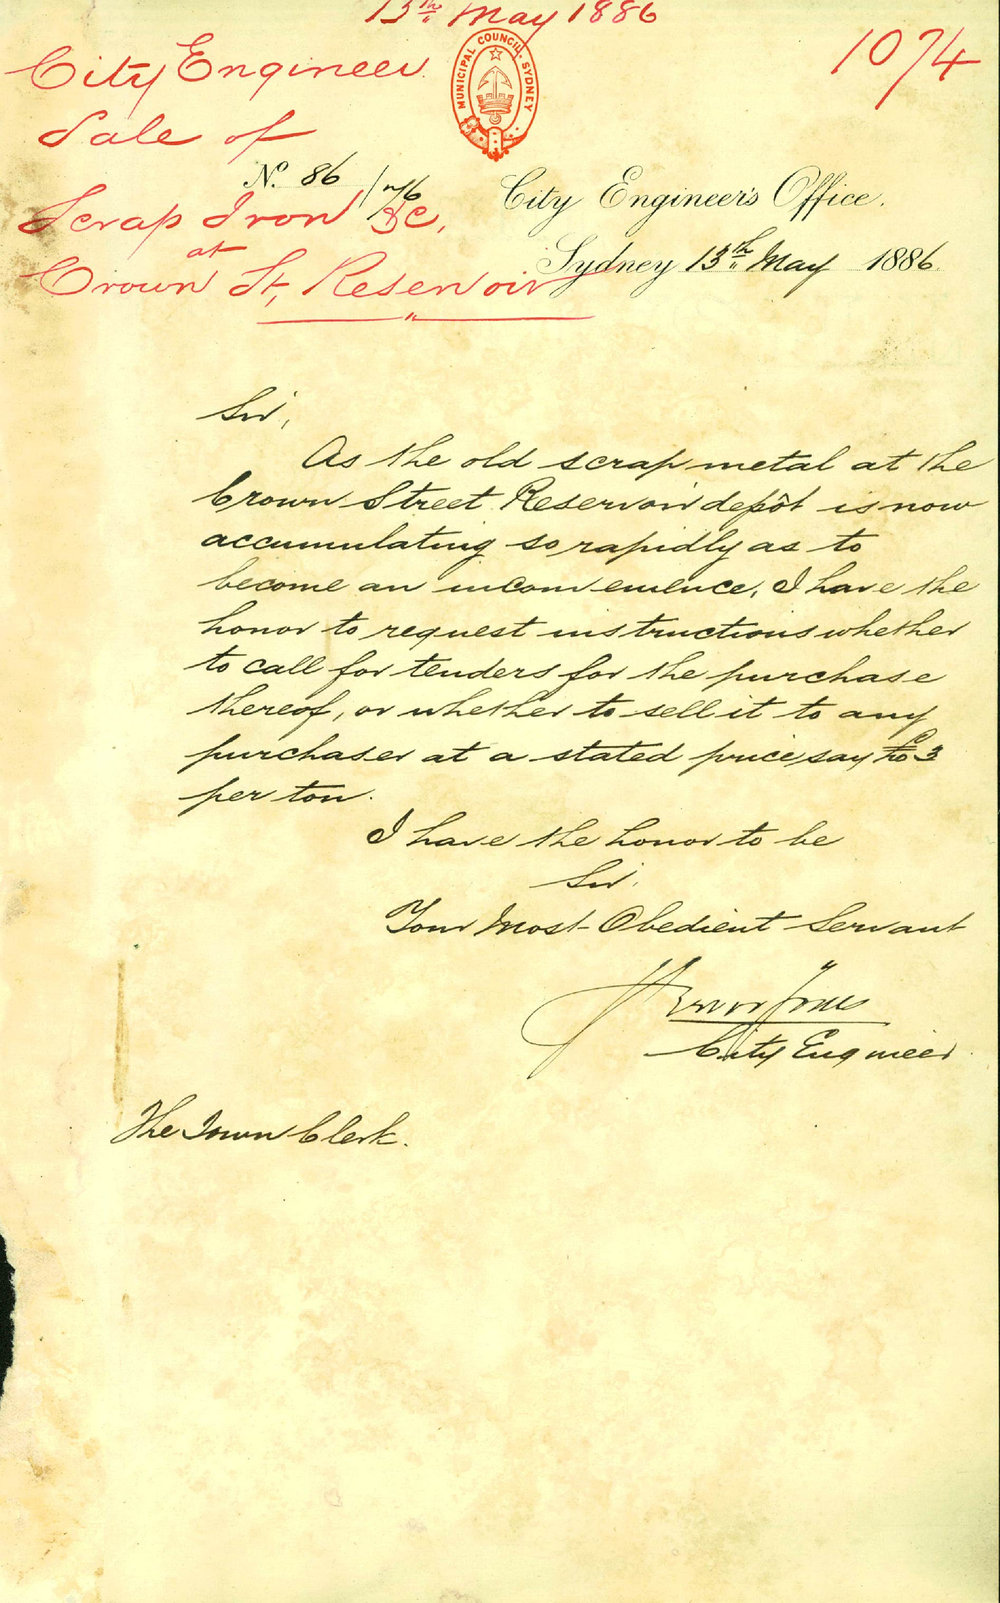 13th May 1886
1074
City Engineer
MUNICIPAL COUNCIL. SYDNEY
Sale of
No. 86
Scrap Iron &c,
City Engineer's Office.
at
Sydney 13th May 1886
Crown St, Reservoir
Sir,
As the old scrap metal at the
Crown Street Reservoir depôt is now
accumulating so rapidly as to
become an inconvenience, I have the
honor to request instructions whether
to call for tenders for the purchase
thereof, or whether to sell it to any
purchaser at a stated price, say £3
per ton.
I have the honor to be
Sir.
Your Most Obedient Servant
Trevor Jones
City Engineer
The Town Clerk.